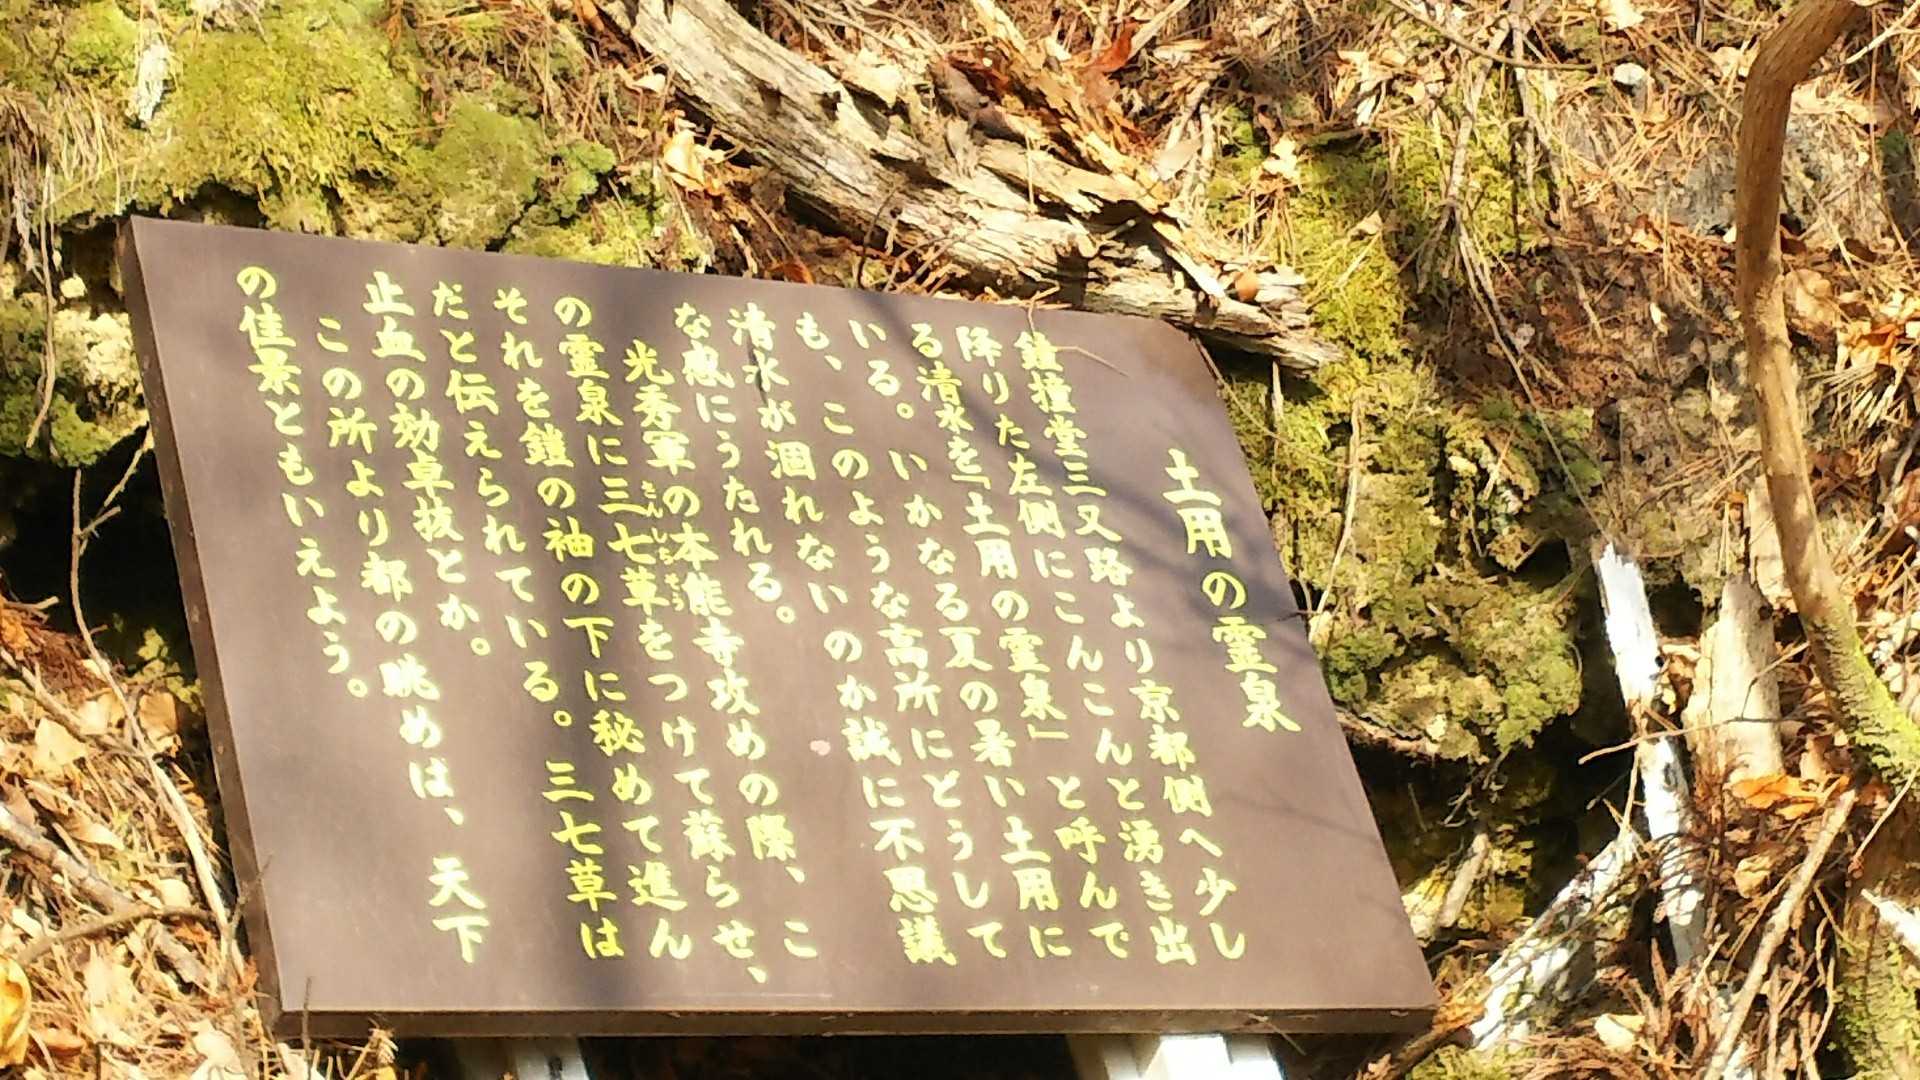 土用の霊泉
鐘撞堂三又路より京都側へ少し
降りた左側にこんこんと湧き出
る清水を「土用の霊泉」と呼んで
いる。いかなる夏の暑い土用に
も、このような高所にどうして
清水が涸れないのか誠に不思議
な感にうたれる。
光秀軍の本能寺攻めの際、こ
の霊泉に三七草をつけて蘇らせ、
さんしちそう
それを鎧の袖の下に秘めて進ん
だと伝えられている。三七草は
止血の効卓抜とか。
この所より都の眺めば、天下
の佳景ともいえよう。